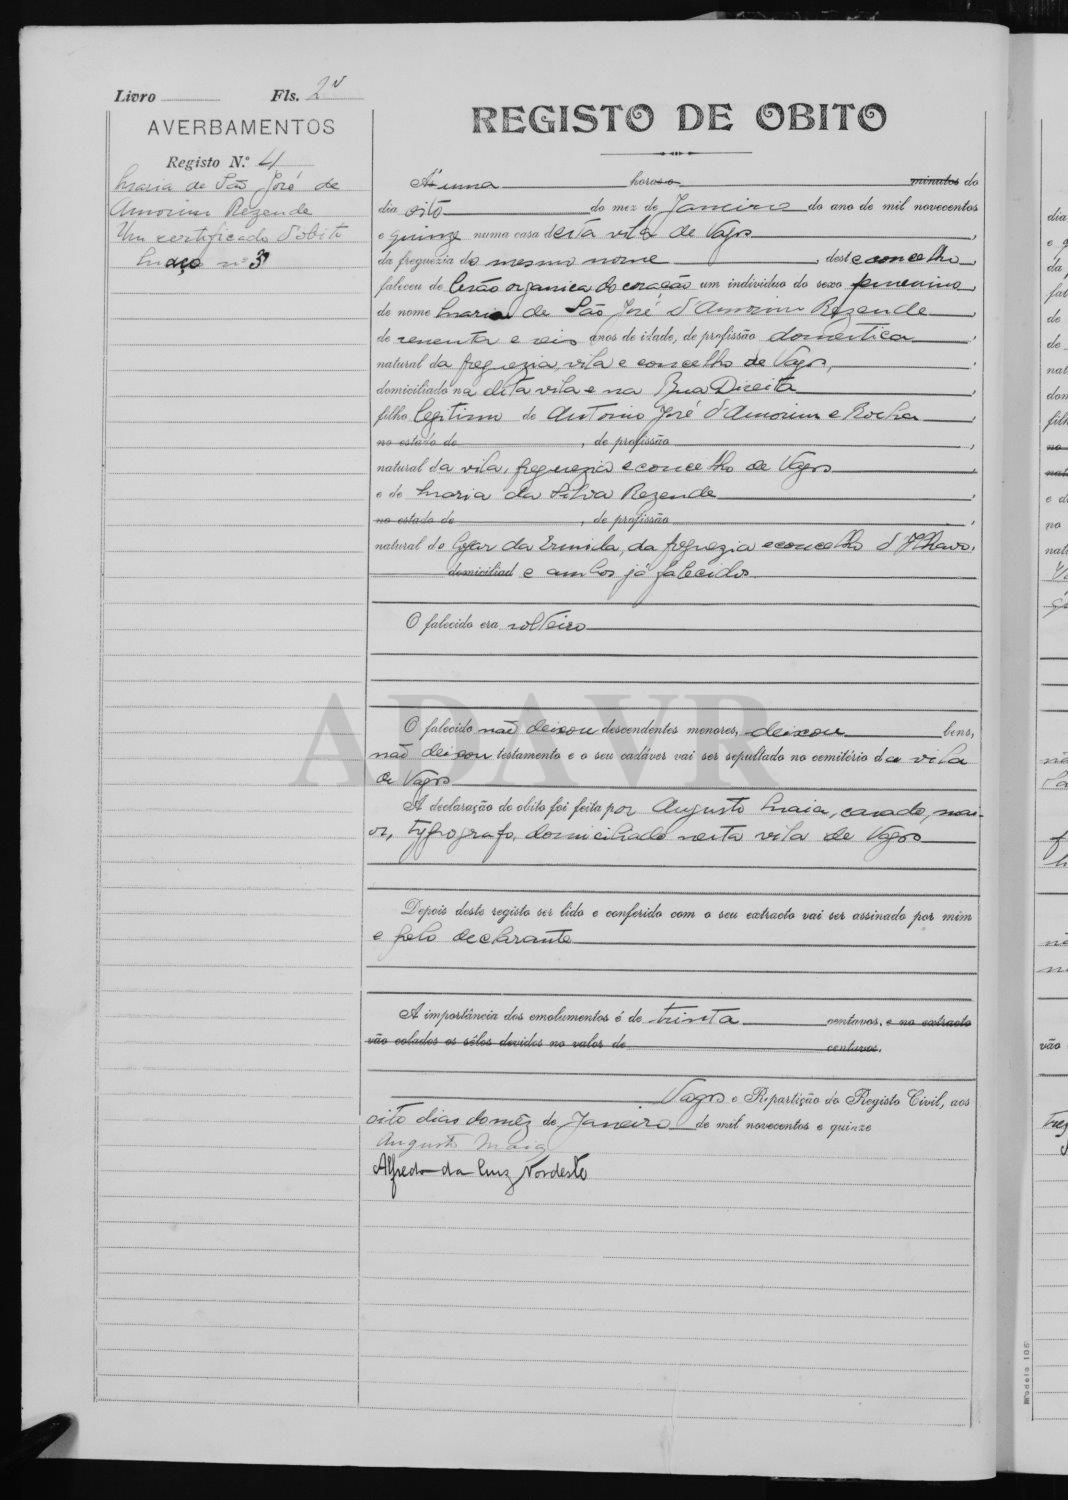 Livro Fls. 2v
AVERBAMENTOS
Registo N.º 4
Maria de São José de
Amorim Rezende
Um certificado d'obito
Maço nº 3
REGISTO DE OBITO
Á's uma horas e minutos do
dia oito do mez de Janeiro do ano de mil novecentos
e quinze numa casa desta vila de Vagos,
da freguezia do mesmo nome, deste concelho,
faleceu de lesão organica do coração um individuo do sexo femenino,
de nome Maria de São José d'Amorim Rezende,
de setenta e seis anos de idade, de profissão domestica,
natural da freguezia, vila e concelho de Vagos,
domiciliado na dita vila e na Rua Direita,
filho legitimo de Antonio José d'Amorim e Rocha,
no estado de , de profissão ,
natural da vila, freguezia e concelho de Vagos,
e de Maria da Silva Rezende,
no estado de , de profissão ,
natural do logar da Ermida, da freguezia e concelho d'Ilhavo,
domiciliad e ambos já falecidos.
O falecido era solteiro
O falecido não deixou descendentes menores, deixou bens,
não deixou testamento e o seu cadáver vai ser sepultado no cemitério da vila
de Vagos
A declaração de obito foi feita por Augusto Maia, casado, mai-
or, typografo, domiciliado nesta vila de Vagos
Depois deste registo ser lido e conferido com o seu extracto vai ser assinado por mim
e pelo declarante
A importância dos emolumentos é de trinta centavos, e no extracto
vão colados os sêlos devidos no valor de centavos.
Vagos e Repartição do Registo Civil, aos
oito dias do mêz de Janeiro de mil novecentos e quinze
Augusto Maia
Alfredo da Luz Nordeste
ADAVR
Modelo 105